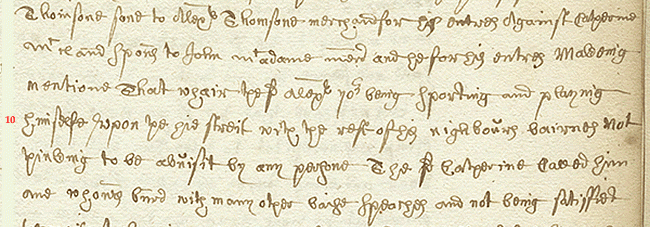 Thomsone sone to Alexr Thomsone merchand for his entres Against Catherine
Mccland spous to John Mcadame merd and he for his entres Makeing
mentione That whair the sd Alexr yor being sporting and playing
10 himselfe upon the hie streit with the rest of his nighbours bairnes Not
thinking to be abusit by any persone The sd Catherine called him
and whores burd with many other base speaches and not being satisfiet